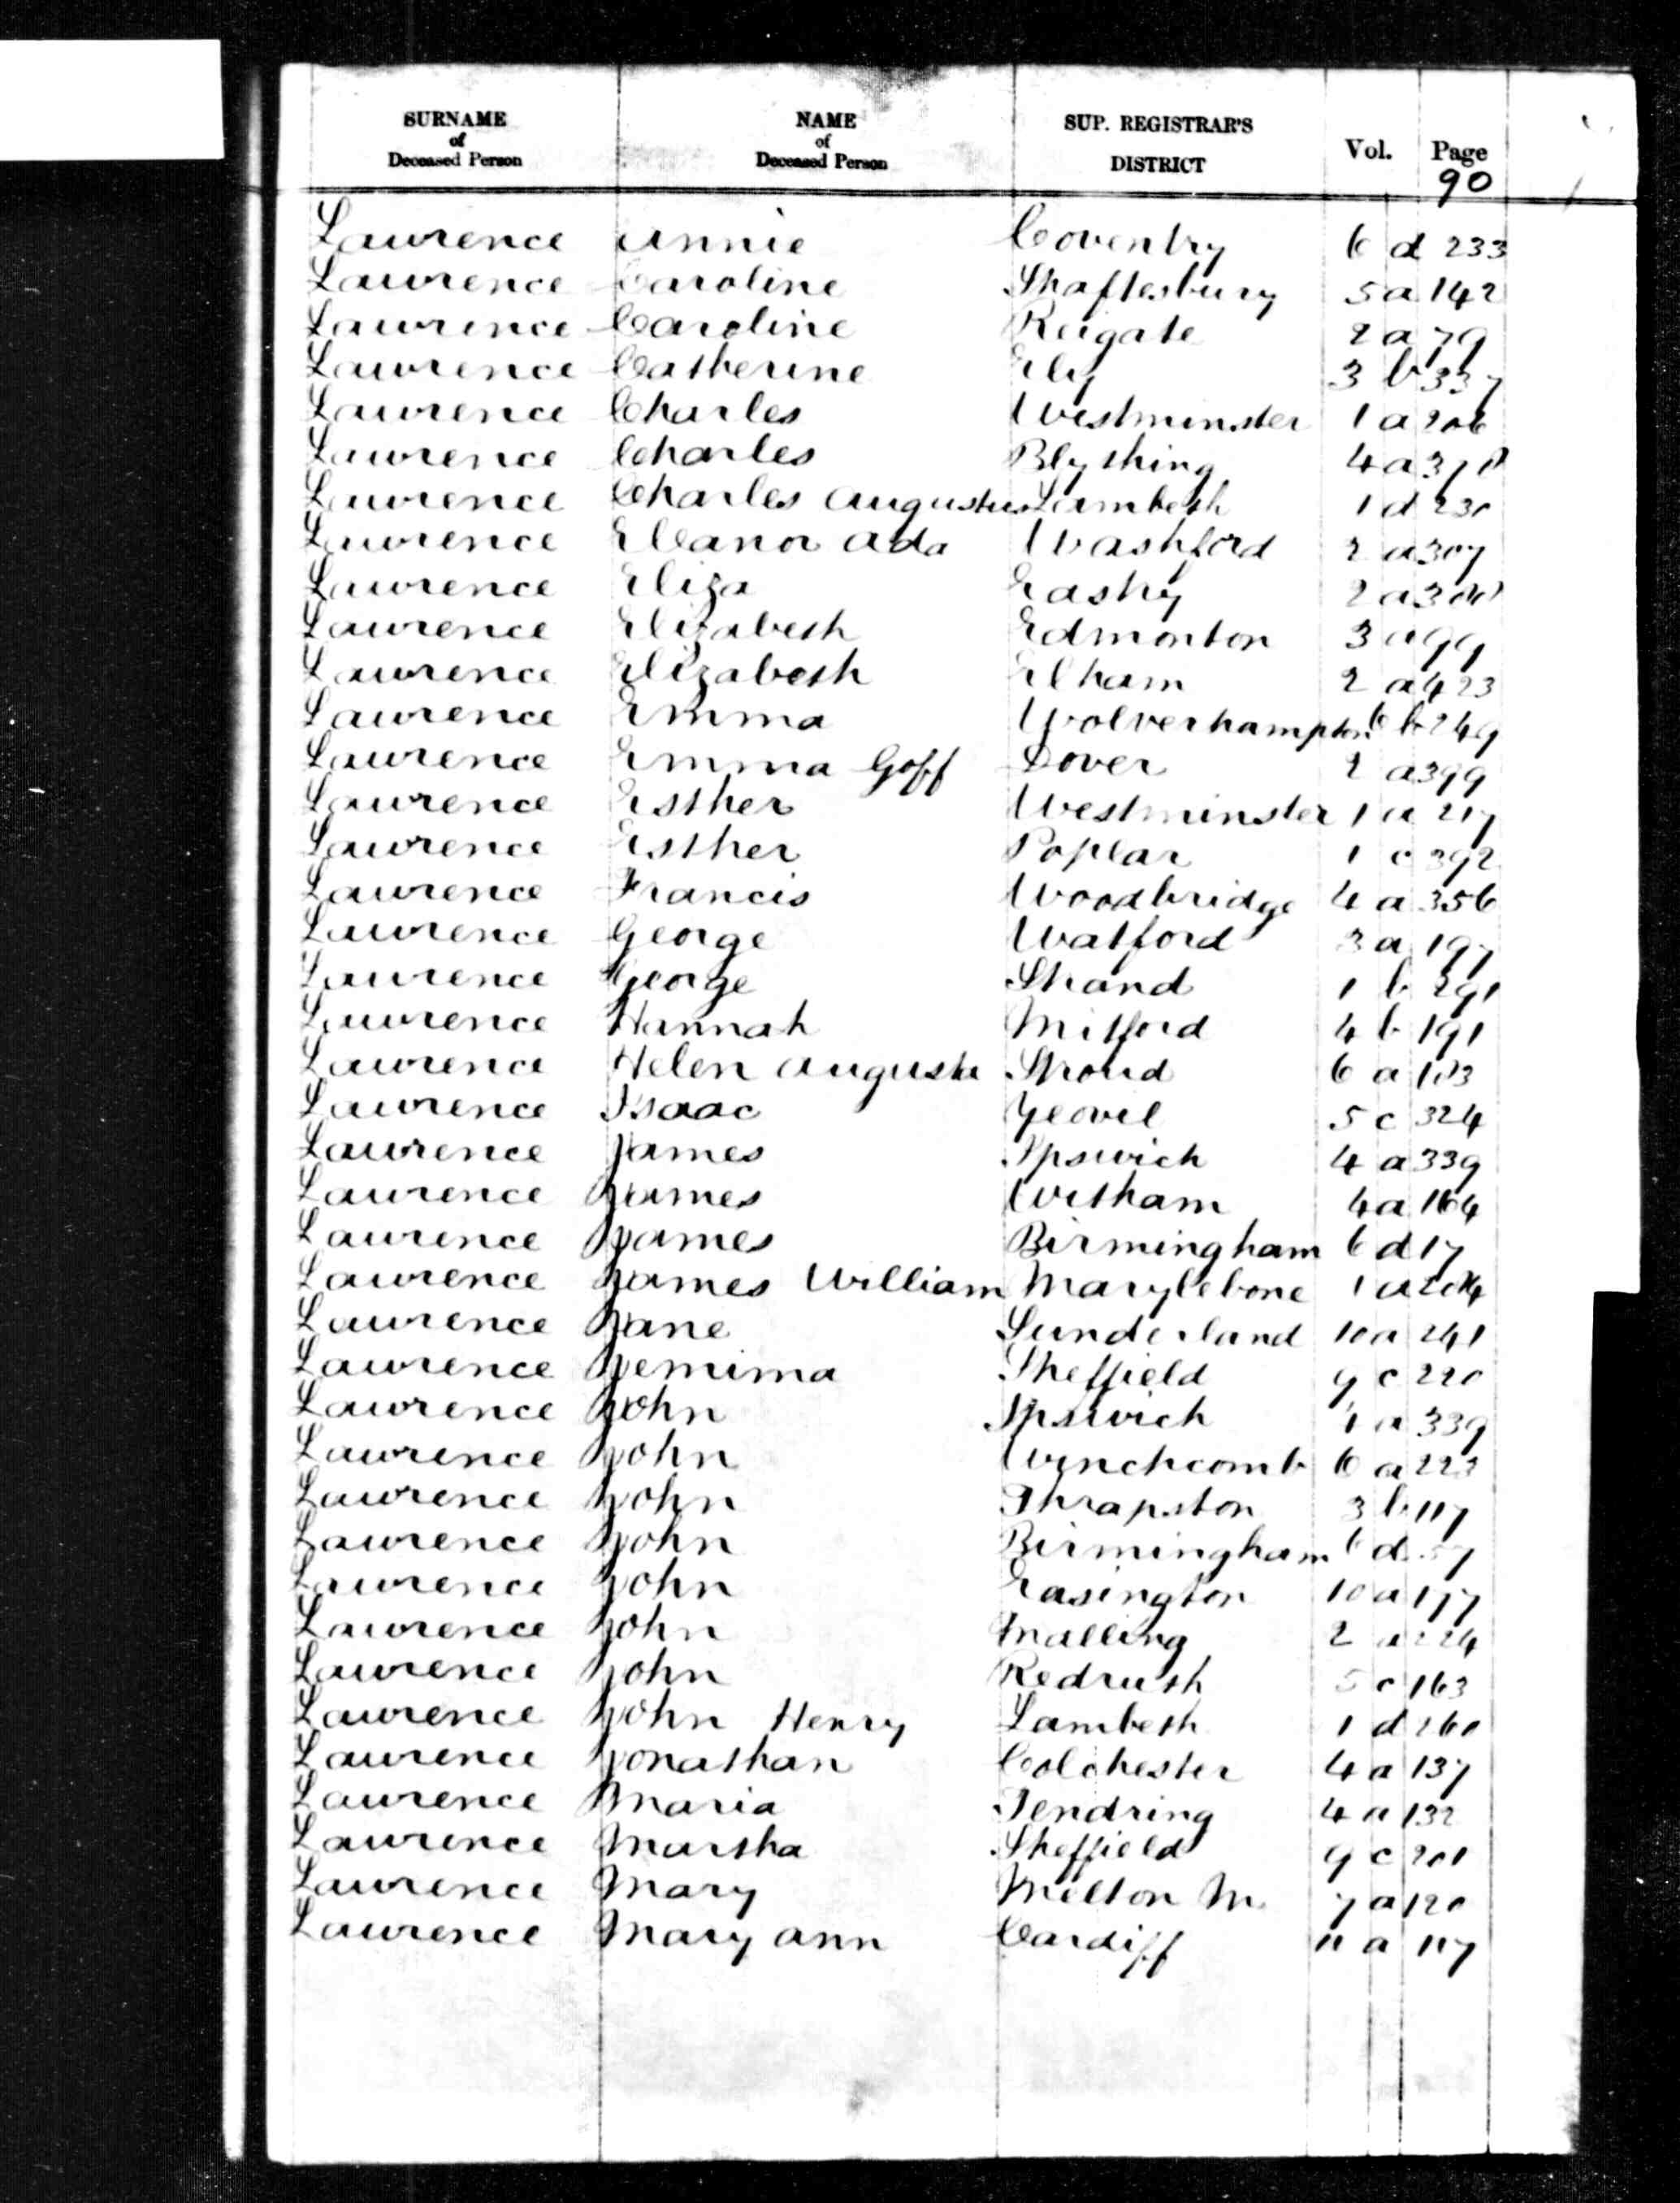 SURNAME of Deceased Person NAME of Deceased Person SUP. REGISTRAR'S DISTRICT Vol. Page
90
Lawrence Annie Coventry 6 d 233
Lawrence Caroline Shaftesbury 5 a 142
Lawrence Caroline Reigate 2 a 79
Lawrence Catherine Ely 3 b 337
Lawrence Charles Westminster 1 a 206
Lawrence Charles Blything 4 a
Lawrence Charles Augustus Lambeth 1 d 230
Lawrence Eleanor Ada W Ashford 2 a 307
Lawrence Eliza Eastry 2 a
Lawrence Elizabeth Edmonton 3 a 99
Lawrence Elizabeth Elham 2 a 423
Lawrence Emma Wolverhampton 6 b 249
Lawrence Emma Goff Dover 2 a 399
Lawrence Esther Westminster 1 a 217
Lawrence Esther Poplar 1 c 392
Lawrence Francis Woodbridge 4 a 356
Lawrence George Watford 3 a 197
Lawrence George Strand 1 b 291
Lawrence Hannah Mitford 4 b 191
Lawrence Helen Augusta Stroud 6 a
Lawrence Isaac Yeovil 5 c 324
Lawrence James Ipswich 4 a 339
Lawrence James Witham 4 a 164
Lawrence James Birmingham 6 d 17
Lawrence James William Marylebone 1 a
Lawrence Jane Sunderland 10 a 241
Lawrence Jemima Sheffield 9 c 220
Lawrence John Ipswich a 339
Lawrence John Winchcomb 6 a 223
Lawrence John Thrapston 3 b 117
Lawrence John Birmingham 6 d
Lawrence John Easington 10 a 177
Lawrence John Malling 2 a 224
Lawrence John Redruth 5 c 163
Lawrence John Henry Lambeth 1 d 260
Lawrence Jonathan Colchester 4 a 137
Lawrence Maria Tendring 4 a 132
Lawrence Martha Sheffield 9 c 201
Lawrence Mary Melton M. 7 a 120
Lawrence Mary Ann Cardiff 11 a 117